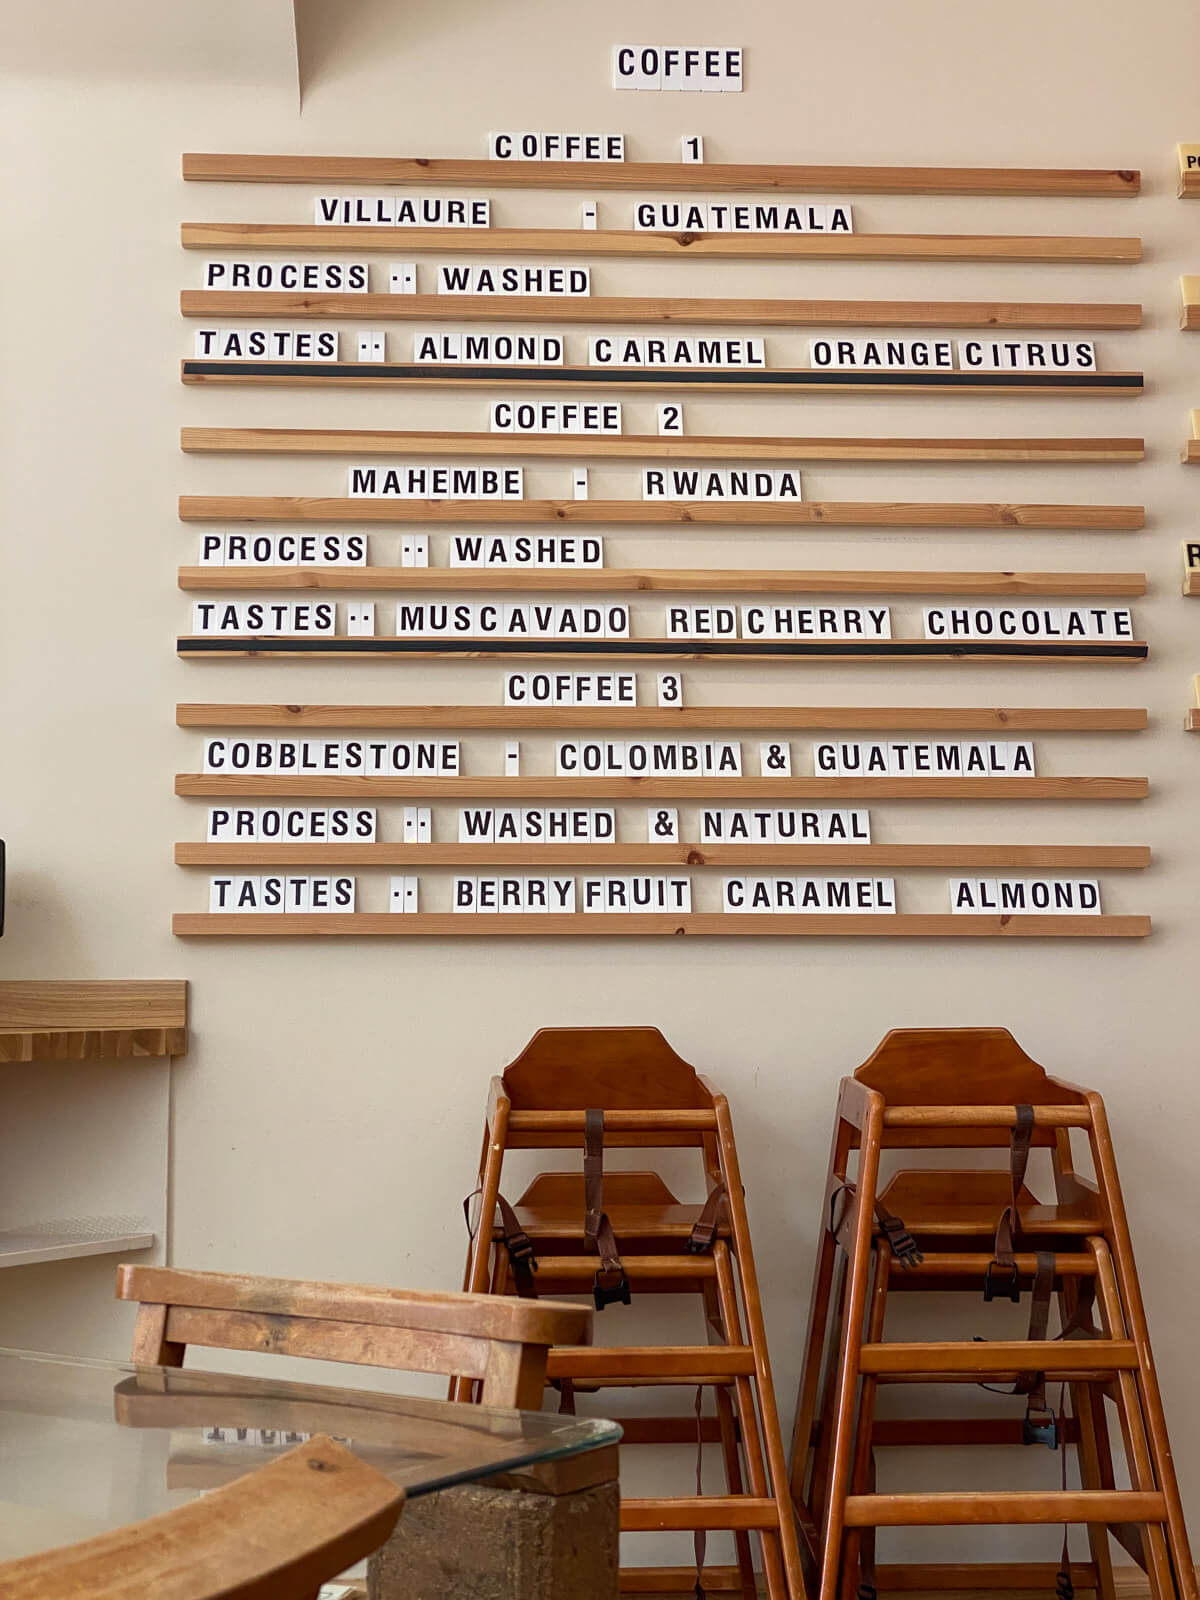 COFFEE
COFFEE 1
VILLAURE - GUATEMALA
PROCESS ·· WASHED
TASTES ·· ALMOND CARAMEL ORANGE CITRUS
COFFEE 2
MAHEMBE - RWANDA
PROCESS ·· WASHED
TASTES ·· MUSCAVADO RED CHERRY CHOCOLATE
COFFEE 3
COBBLESTONE - COLOMBIA & GUATEMALA
PROCESS ·· WASHED & NATURAL
TASTES ·· BERRY FRUIT CARAMEL ALMOND